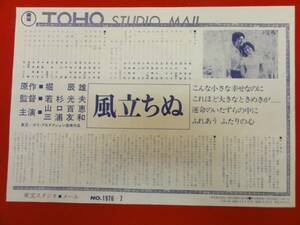 TOHO STUDIO MAIL
原作・堀 辰雄
監督・若杉光夫
主演・山口百恵
三浦友和
風立ちぬ
こんな小さな幸せなのに
これほど大きなときめきが……
運命のいたずらの中に
ふれあう ふたりの心
東宝スタジオ■メール
NO.1976-7